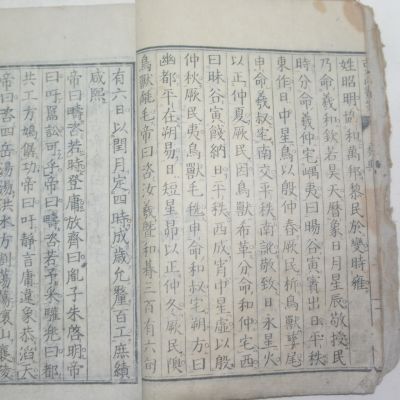 姓昭明協和萬邦黎民於變時雍
乃命羲和欽若昊天曆象日月星辰敬授民
時分命羲仲宅嵎夷曰暘谷寅賓出日平秩
東作日中星鳥以殷仲春厥民析鳥獸孳尾
申命羲叔宅南交平秩南訛敬致日永星火
以正仲夏厥民因鳥獸希革分命和仲宅西
曰昧谷寅餞納日平秩西成宵中星虛以殷
仲秋厥民夷鳥獸毛毨申命和叔宅朔方曰
幽都平在朔易日短星昴以正仲冬厥民隩
鳥獸氄毛帝曰咨汝羲暨和朞三百有六旬
有六日以閏月定四時成歲允釐百工庶績
咸熙
帝曰疇咨若時登庸放齊曰胤子朱啓明帝
曰吁嚚訟可乎帝曰疇咨若予采驩兜曰都
共工方鳩僝功帝曰吁靜言庸違象恭滔天
帝曰咨四岳湯湯洪水方割蕩蕩懷山襄陵